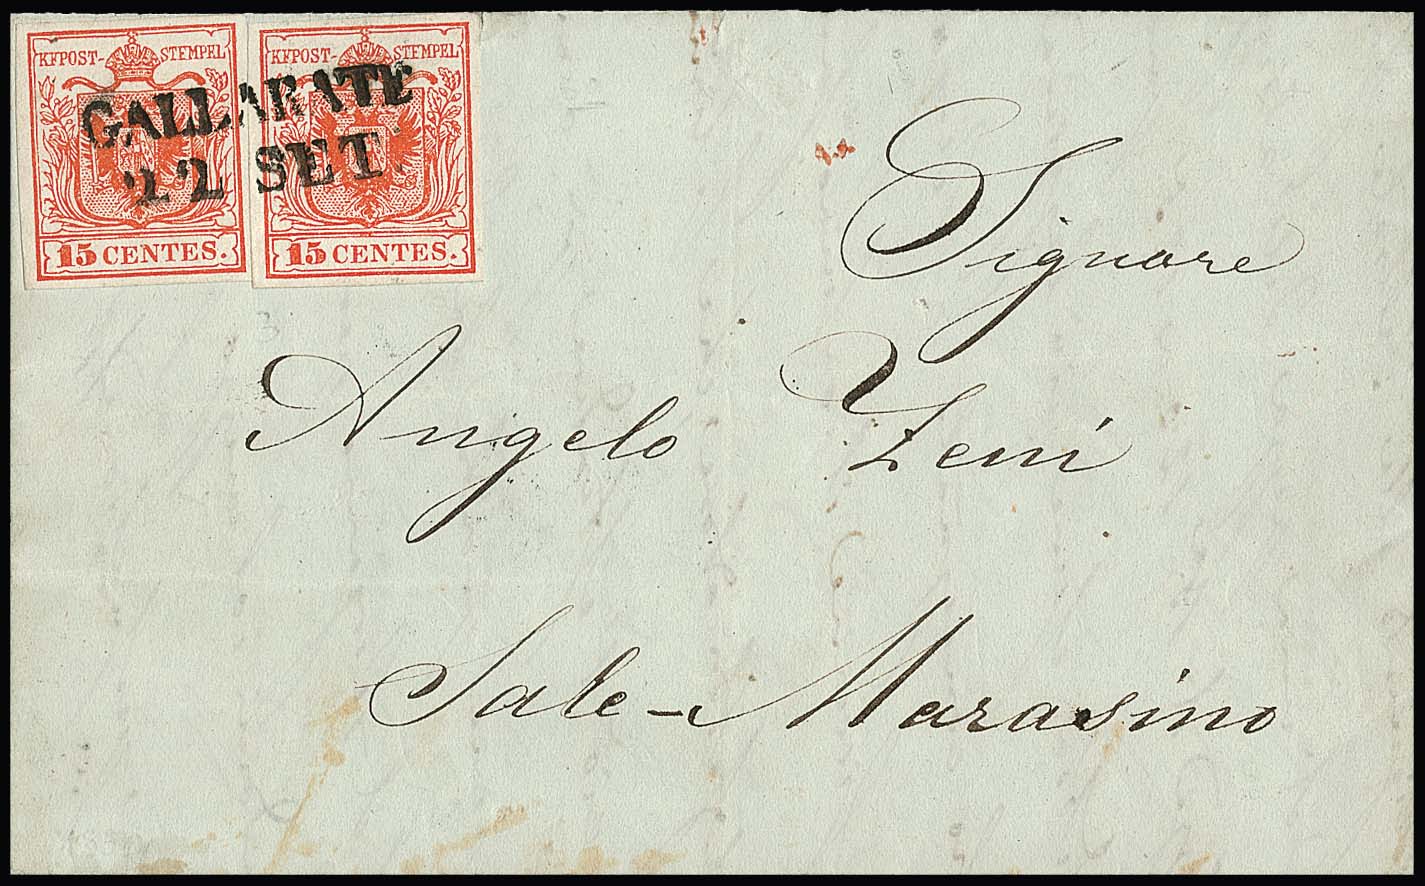 KKPOST-STEMPEL KKPOST-STEMPEL
GALLARATE
22 SET
15 CENTES. 15 CENTES.
Signore
Angelo Zeni
Sale-Marasino